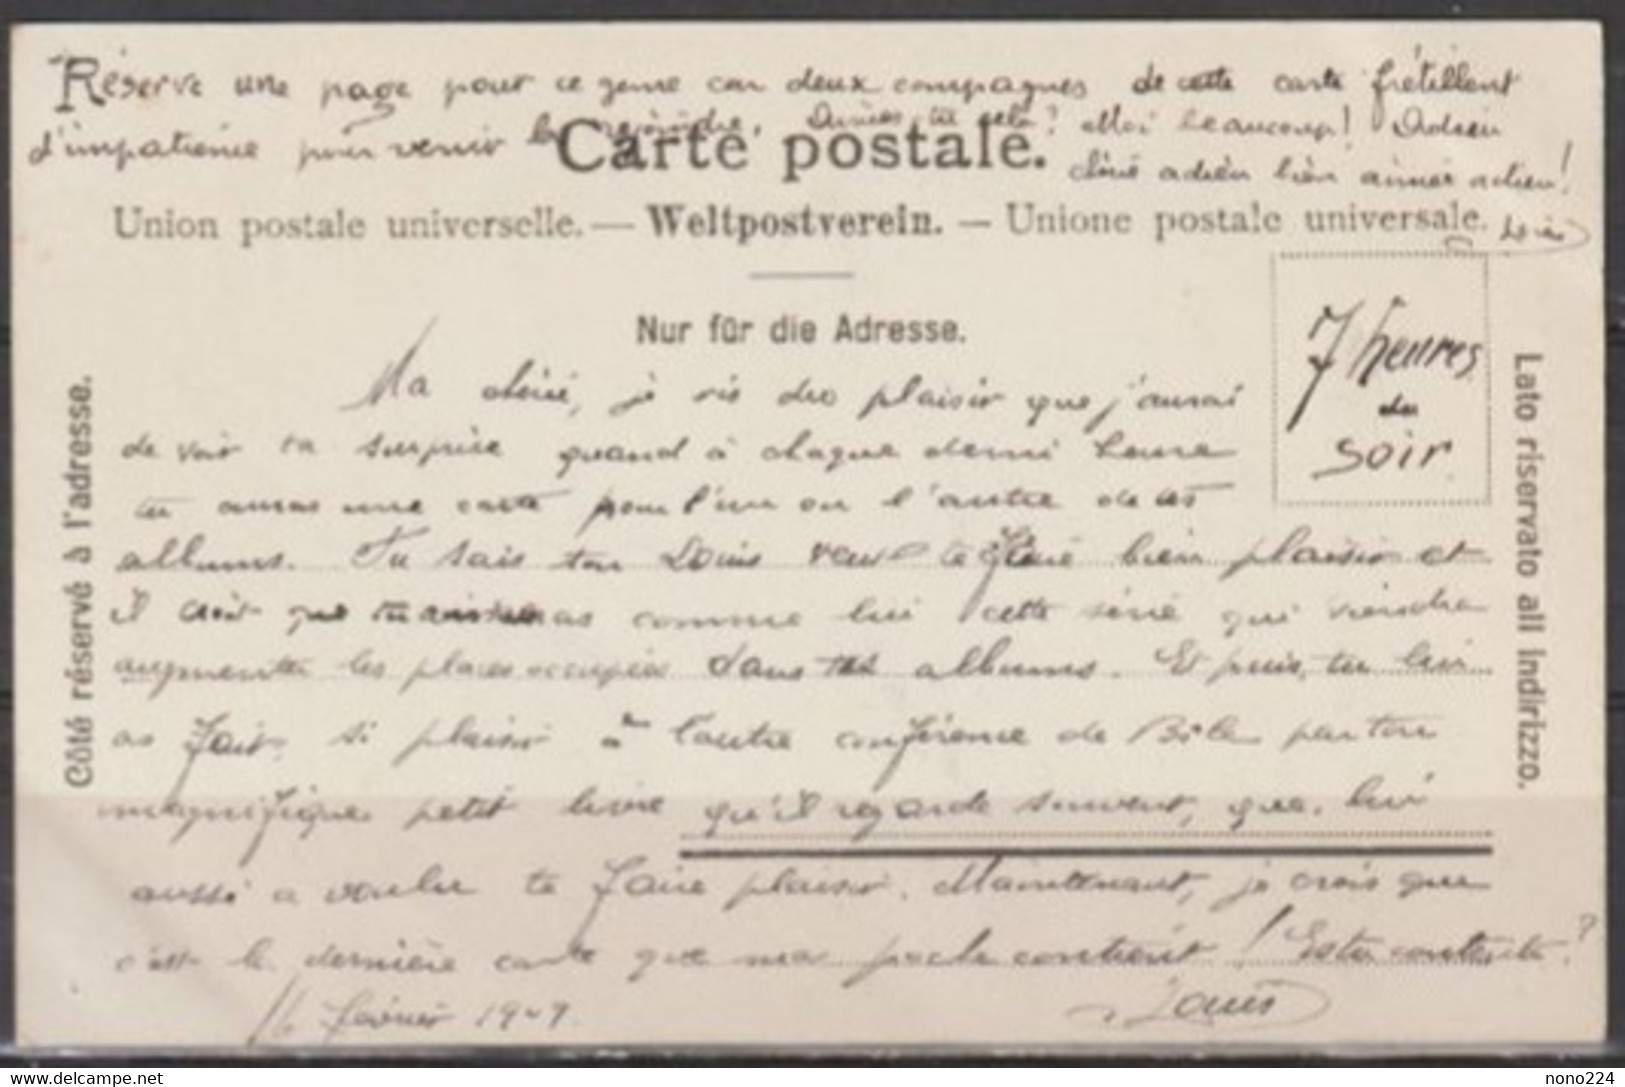 Réserve une page pour ce genre car deux compagnes de cette carte frétillent
d'impatience pour venir la rejoindre. Aimes-tu cela? Moi beaucoup! Adieu
Carte postale.
chérie adieu bien aimée adieu!
Union postale universelle. — Weltpostverein. — Unione postale universale.
Louis
Nur für die Adresse.
7 heures
du
soir
Côté réservé à l'adresse.
Lato riservato all indirizzo.
Ma chérie, je ris du plaisir que j'aurai
de voir ta surprise quand à chaque demi heure
tu auras une carte pour l'un ou l'autre de tes
albums. Tu sais ton Louis veut te faire bien plaisir et
il croit que tu aimeras comme lui cette série qui viendra
augmenter les places occupées dans tes albums. Et puis, tu lui
as fait si plaisir à l'autre conférence de Bâle par ton
magnifique petit livre qu'il regarde souvent, que lui
aussi a voulu te faire plaisir. Maintenant, je crois que
c'est la dernière carte que ma poche contient! Es-tu contente?
février Louis
nono224
https://www.delcampe.net